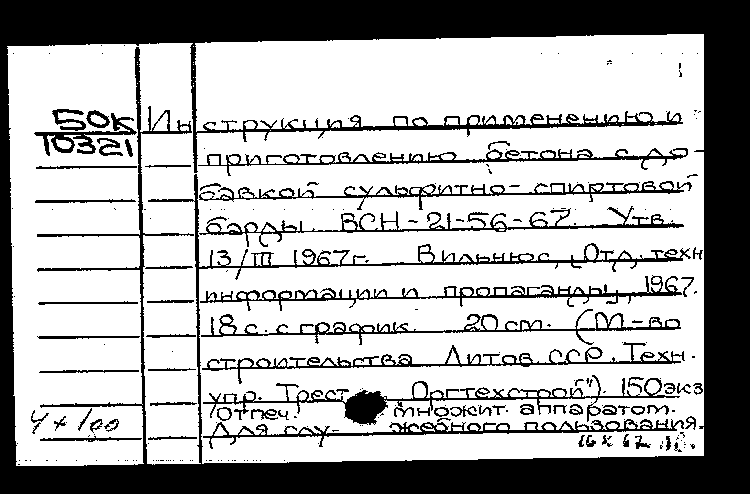 50К
10321
Инструкция по применению и
приготовлению бетона с до-
бавкой сульфитно-спиртовой
барды. ВСН-21-56-67. Утв.
13/III 1967г. Вильнюс, Отд. техн
информации и пропаганды, 1967.
18 с. с график. 20 см. (М-во
строительства Литов. ССР. Техн.
упр. Трест "Оргтехстрой"). 150 экз
/Отпеч. множит. аппаратом.
Для слу- жебного пользования.
16 X 67